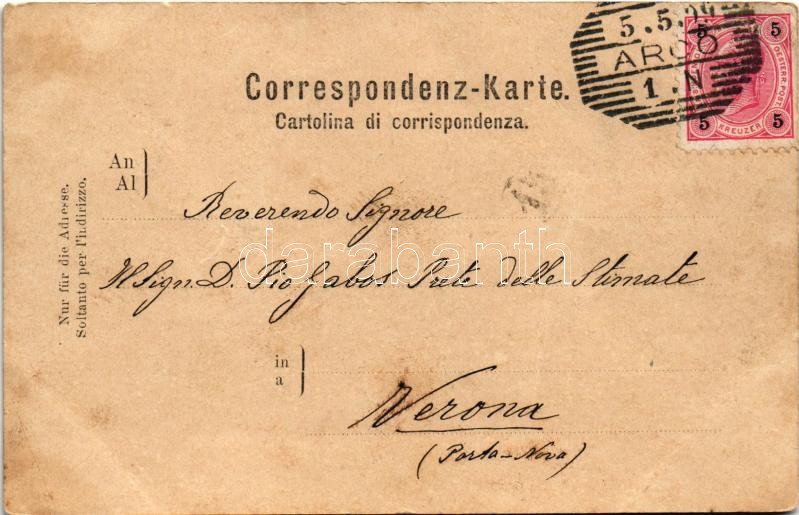 5.5.99
ARCO
1.N
5 5
OESTERR. POST
5 KREUZER 5
Correspondenz-Karte.
Cartolina di corrispondenza.
An
Al
Nur für die Adresse.
Soltanto per l'indirizzo.
Reverendo Signore
Il Sign. D. Pio Gabos Prete delle Stimate
in
a
Verona
(Porta-Nova)
darabanth